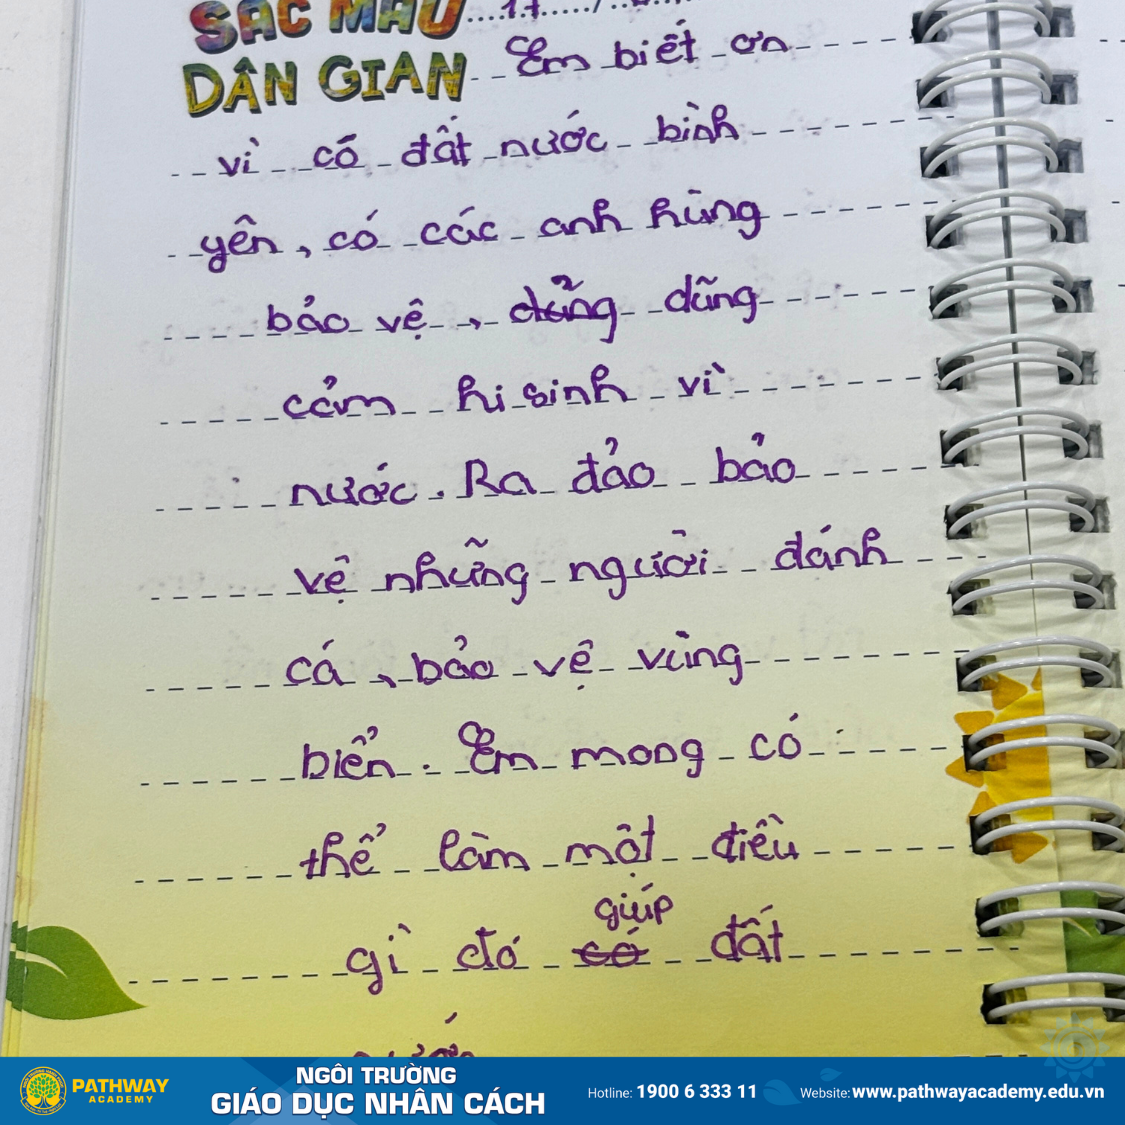 SẮC MÀU
DÂN GIAN
Em biết ơn
vì có đất nước bình
yên, có các anh hùng
bảo vệ, dũng
cảm hi sinh vì
nước. Ra đảo bảo
vệ những người đánh
cá, bảo vệ vùng
biển. Em mong có
thể làm một điều
gì đó giúp đất
PATHWAY
ACADEMY
NGÔI TRƯỜNG
GIÁO DỤC NHÂN CÁCH
Hotline: 1900 6 333 11
Website: www.pathwayacademy.edu.vn